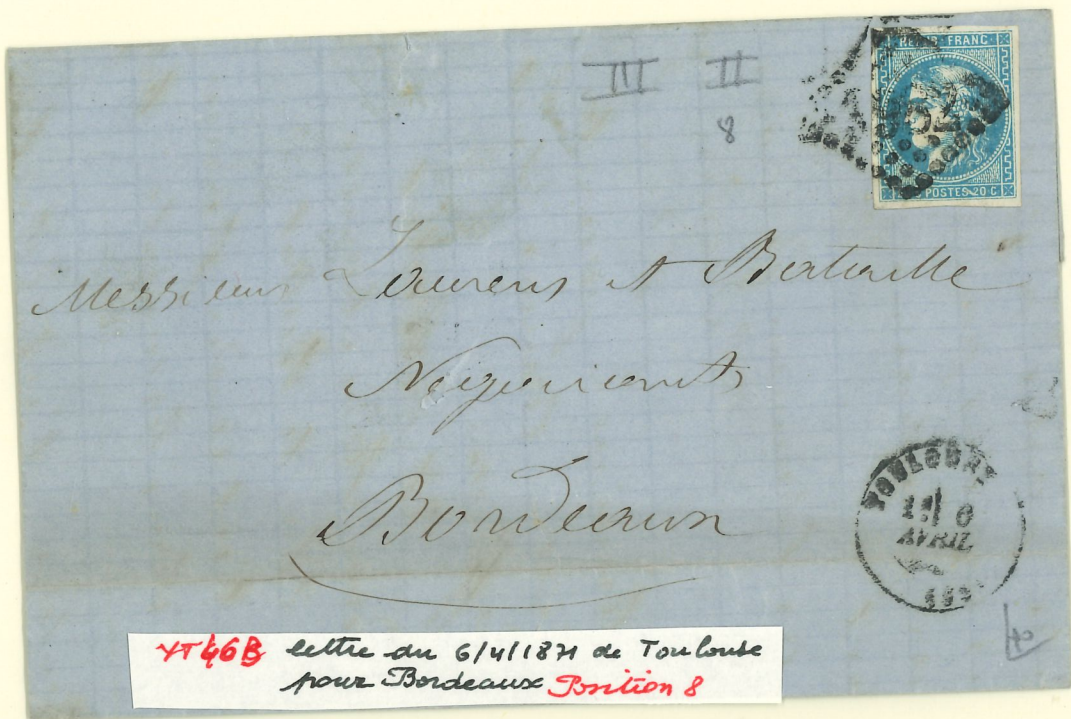 III II
8
REPUB · FRANC ·
62
POSTES 20 C
Messieurs Laurens & Bataille
Negociants
Bordeaux
TOULOUSE
6
AVRIL
YT 46B lettre du 6/4/1871 de Toulouse
pour Bordeaux Position 8